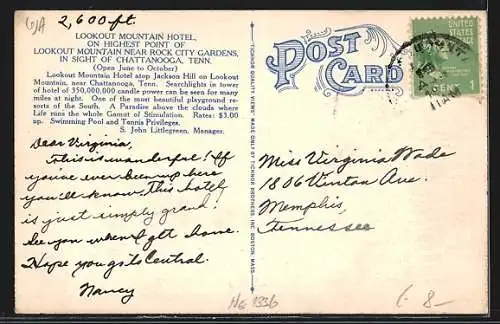 G/A
2,600 ft.
LOOKOUT MOUNTAIN HOTEL,
ON HIGHEST POINT OF
LOOKOUT MOUNTAIN NEAR ROCK CITY GARDENS,
IN SIGHT OF CHATTANOOGA, TENN.
(Open June to October)
Lookout Mountain Hotel atop Jackson Hill on Lookout
Mountain, near Chattanooga, Tenn. Searchlights in tower
of hotel of 350,000,000 candle power can be seen for many
miles at night. One of the most beautiful playground re-
sorts of the South. A Paradise above the clouds where
Life runs the whole Gamut of Stimulation. Rates: $3.00
up. Swimming Pool and Tennis Privileges.
S. John Littlegreen, Manager.
Dear Virginia,
This is wonderful! If
you've ever been up here
you'll know. This hotel
is just simply grand!
See you when I get home.
Hope you go to Central.
Nancy
"TICHNOR QUALITY VIEWS" MADE ONLY BY TICHNOR BROTHERS, INC. BOSTON, MASS.
POST
CARD
UNITED
STATES
POSTAGE
1
CENT
Miss Virginia Wade
1806 Vinton Ave.
Memphis,
Tennessee